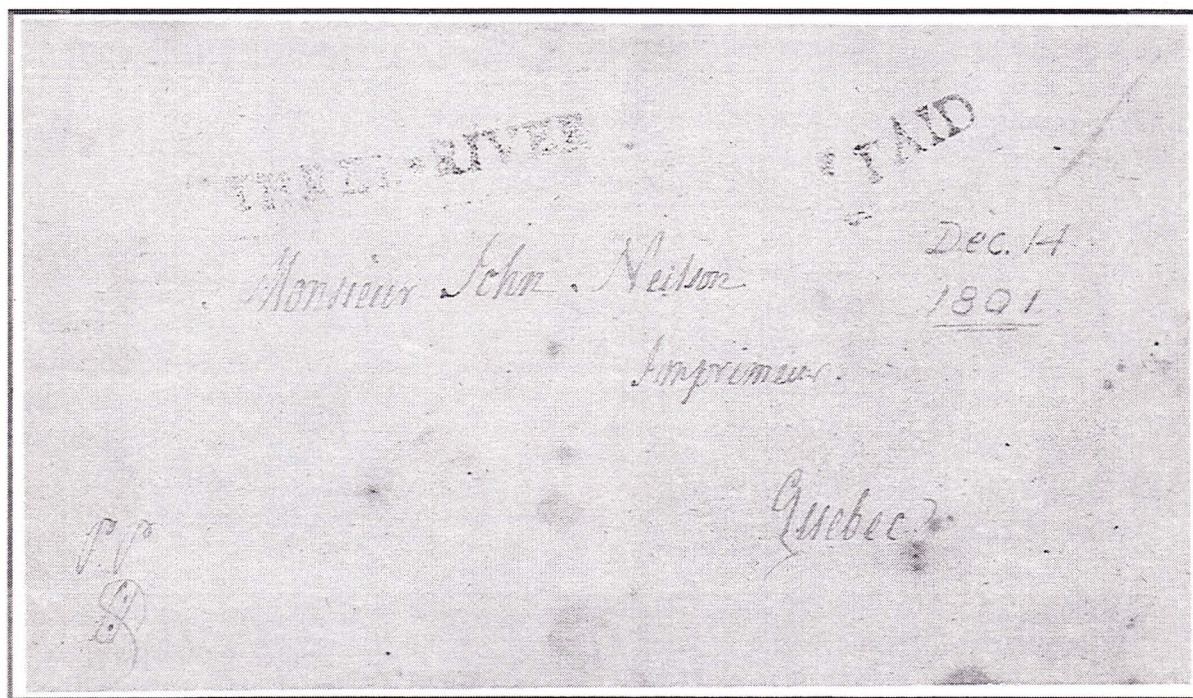 THREE-RIVER
PAID
Dec. 14
1801
Monsieur John Neilson
Imprimeur.
Quebec
P.P